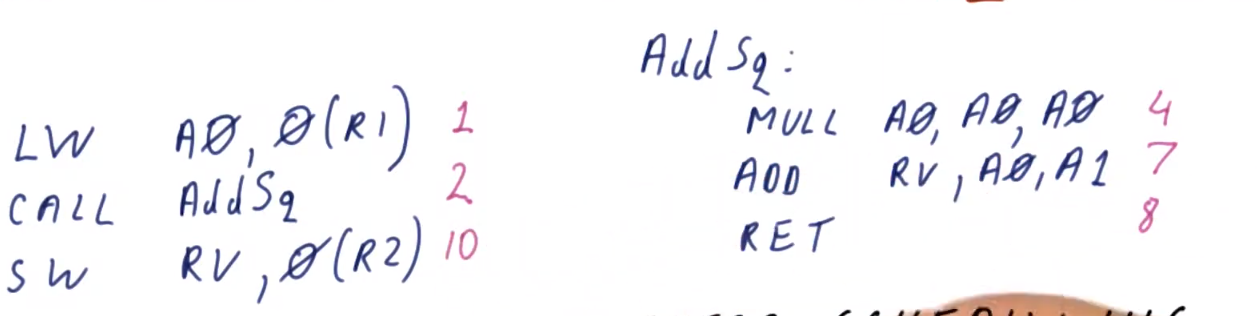 LW AØ, Ø(R1) 1
CALL AddSq 2
SW RV, Ø(R2) 10
AddSq:
MULL AØ, AØ, AØ 4
ADD RV, AØ, A1 7
RET 8